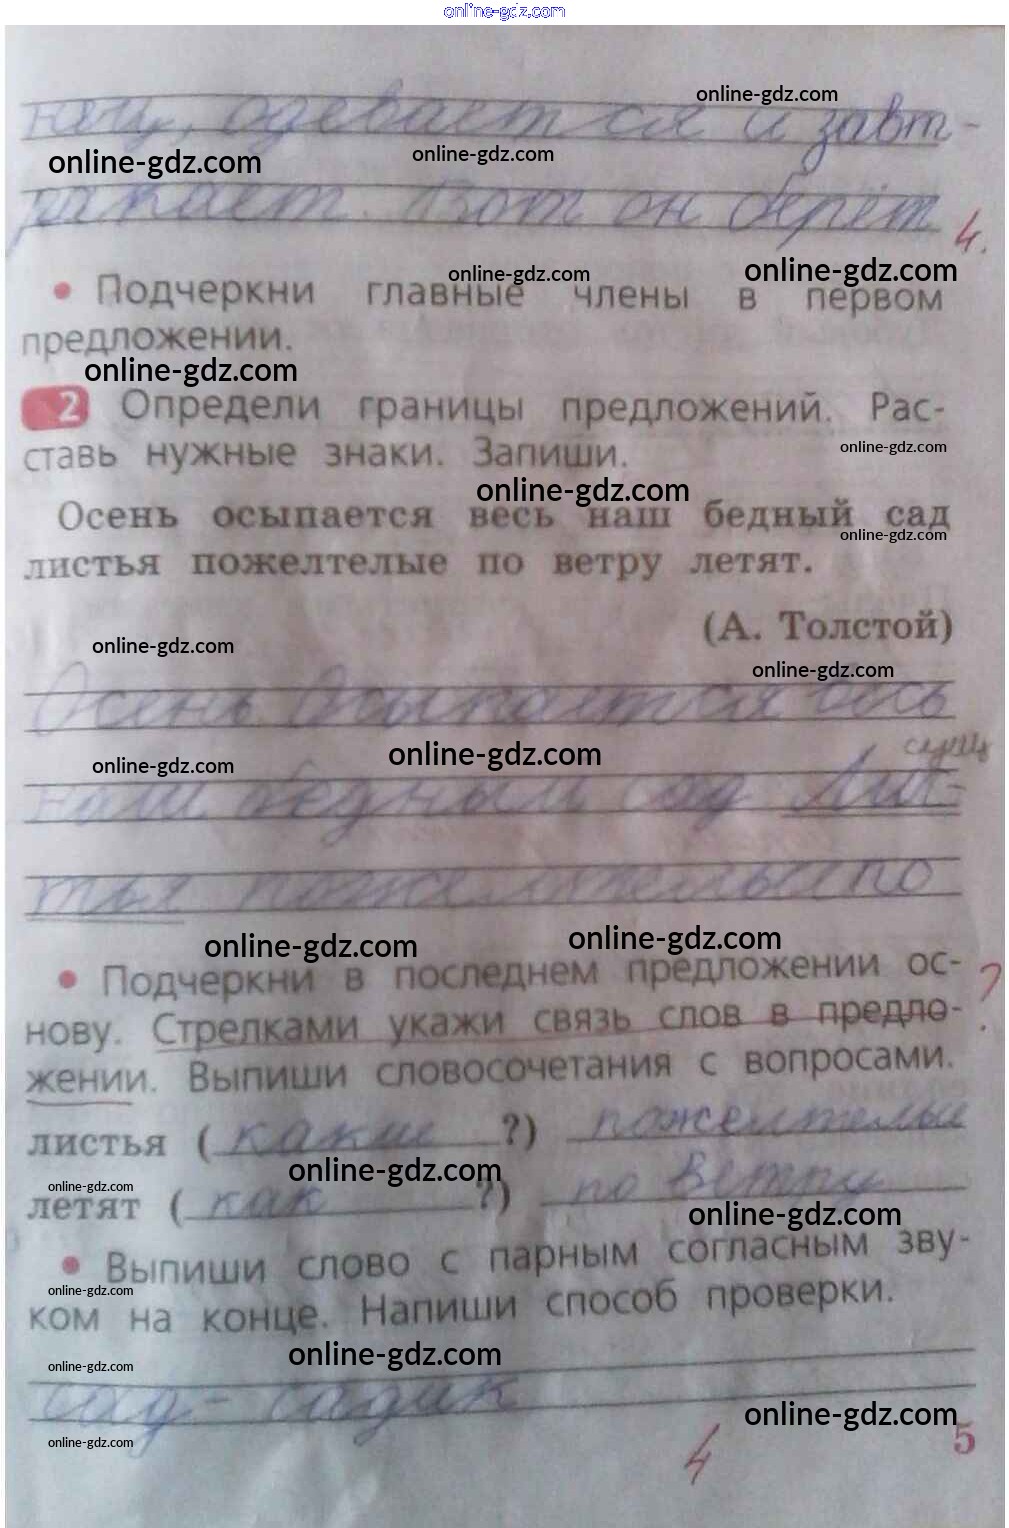 online-gdz.com
online-gdz.com
одевается и завт-
online-gdz.com online-gdz.com
ракает. Вот он берёт
4.
online-gdz.com online-gdz.com
• Подчеркни главные члены в первом
предложении.
online-gdz.com
2 Определи границы предложений. Рас-
ставь нужные знаки. Запиши.
online-gdz.com
online-gdz.com
Осень осыпается весь наш бедный сад
online-gdz.com
листья пожелтелые по ветру летят.
(А. Толстой)
online-gdz.com
online-gdz.com
Осень Осыпается весь
сущ
online-gdz.com online-gdz.com
наш бедный сад Лис-
тья по
online-gdz.com online-gdz.com
• Подчеркни в последнем предложении ос-
?
нову. Стрелками укажи связь слов в предло-
жении. Выпиши словосочетания с вопросами.
листья (какие ?)
online-gdz.com
online-gdz.com
летят (как ?) по ветру
online-gdz.com
• Выпиши слово с парным согласным зву-
online-gdz.com
ком на конце. Напиши способ проверки.
online-gdz.com
online-gdz.com
сад - садик
online-gdz.com
online-gdz.com
4
5